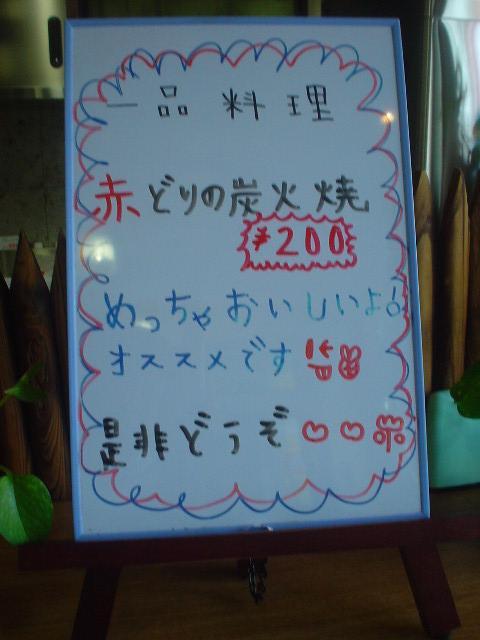 一品料理
赤どりの炭火焼
¥200
めっちゃおいしいよ!
オススメです!!
是非どうぞ♡♡